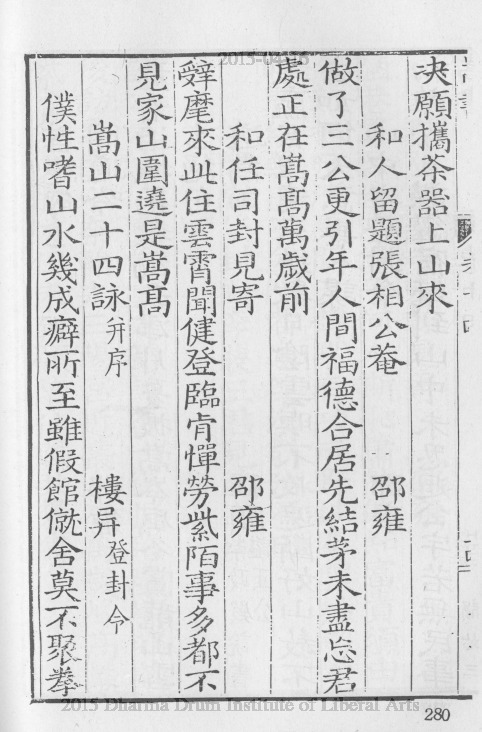 决願攜茶器上山來
和人留題張相公菴 邵雍
做了三公更引年人間福德合居先結茅未盡忘君
處正在嵩高萬歲前
和任司封見寄 邵雍
辭麾來此住雲霄聞健登臨肯憚勞紫陌事多都不
見家山圍遶是嵩高
嵩山二十四詠并序 樓异登封令
僕性嗜山水幾成癖所至雖假館僦舍莫不聚拳
2015 Dharma Drum Institute of Liberal Arts
280